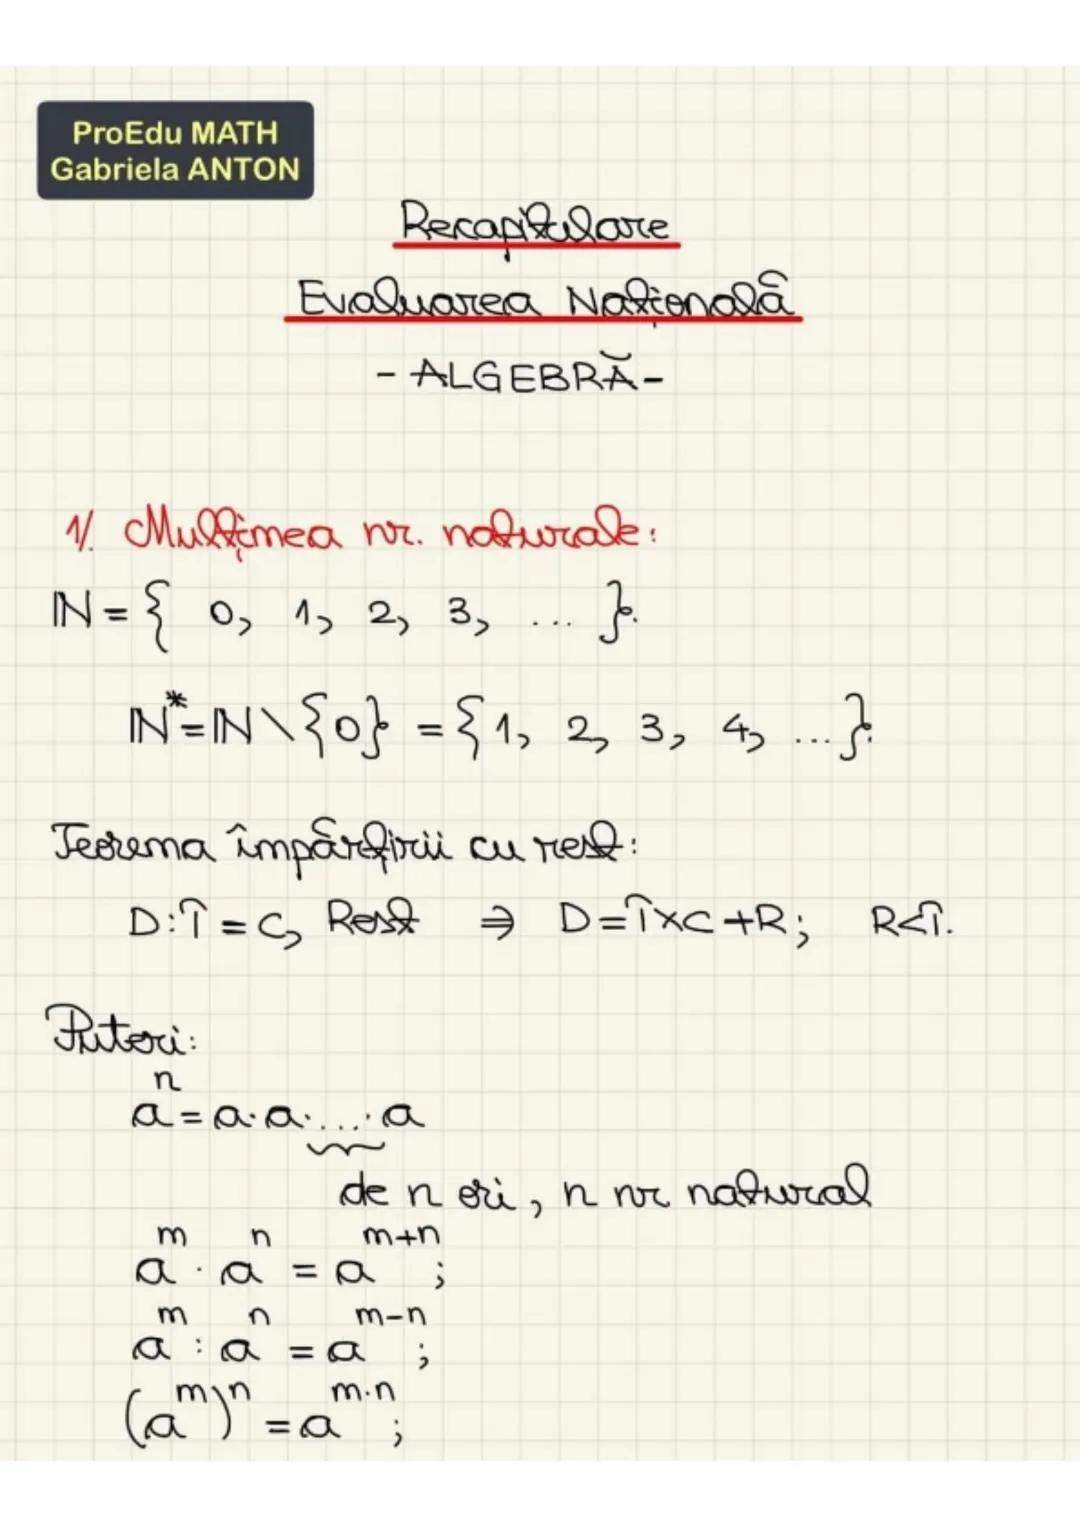 ProEdu MATH
Gabriela ANTON
Recapitulare
Evaluarea Națională
- ALGEBRĂ -
1/. Mulțimea nr. naturale:
ℕ = { 0, 1, 2, 3, ... }.
ℕ* = ℕ \ {0} = { 1, 2, 3, 4, ... }.
Teorema împărțirii cu rest:
D:Î = C, Rest ⇒ D = Î×C + R; R<Î.
Puteri:
aⁿ = a·a·...·a
de n ori, n nr natural
aᵐ · aⁿ = aᵐ⁺ⁿ;
aᵐ : aⁿ = aᵐ⁻ⁿ;
(aᵐ)ⁿ = aᵐ·ⁿ;